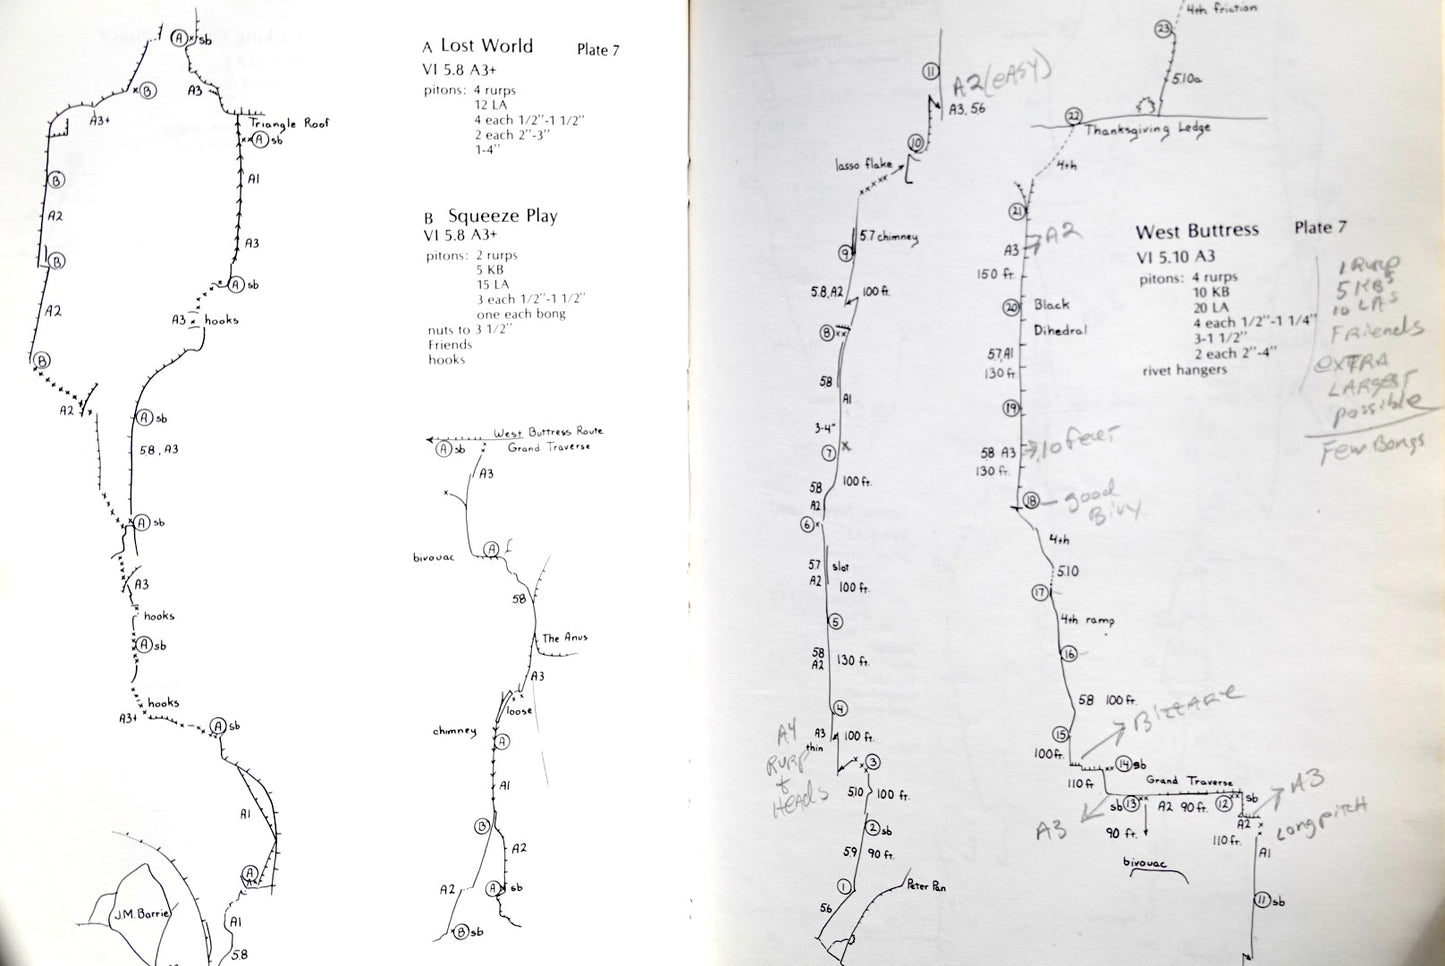 A Lost World Plate 7
VI 5.8 A3+
pitons: 4 rurps
12 LA
4 each 1/2"-1 1/2"
2 each 2"-3"
1-4"
B Squeeze Play
VI 5.8 A3+
pitons: 2 rurps
5 KB
15 LA
3 each 1/2"-1 1/2"
one each bong
nuts to 3 1/2"
Friends
hooks
A sb
B
A3
A3+
Triangle Roof
A sb
B
A1
A2
A3
B
A sb
A2
A3 hooks
B
A2
A sb
58, A3
A sb
A3
hooks
A sb
hooks
A3+
A sb
A1
A
J.M. Barrie
A1
5.8
West Buttress Route
A sb
Grand Traverse
A3
bivouac
A
58
The Anus
A3
loose
chimney
A
A1
B
A2
A2
A sb
B sb
11
A2 (EASY)
A3, 56
10
lasso flake
5.7 chimney
9
5.8, A2 100 ft.
8
58
A1
3-4"
7 x
58 100 ft.
A2
6
57 slot
A2
100 ft.
5
58
A2 130 ft.
4
A3 100 ft.
thin
A4
RURP
+
HEADS
3
510 100 ft.
2 sb
59 90 ft.
1
Peter Pan
56
4th friction
23
5.10a
22
Thanksgiving Ledge
4th
21
A3 A2
150 ft.
20 Black
Dihedral
57, A1
130 ft.
19
58 A3 10 feet
130 ft.
18 good
Bivy
4th
510
17
4th ramp
16
58 100 ft.
15 BIZZARE
100 ft.
14 sb
110 ft
Grand Traverse
sb 13 A2 90 ft. 12 sb
A3
A3
90 ft.
A2
110 ft.
Long pitch
A1
bivouac
11 sb
West Buttress Plate 7
VI 5.10 A3
pitons: 4 rurps
10 KB
20 LA
4 each 1/2"-1 1/4"
3-1 1/2"
2 each 2"-4"
rivet hangers
1 RURP
5 KBs
10 LAs
Friends
EXTRA
LARGEST
possible
Few Bongs